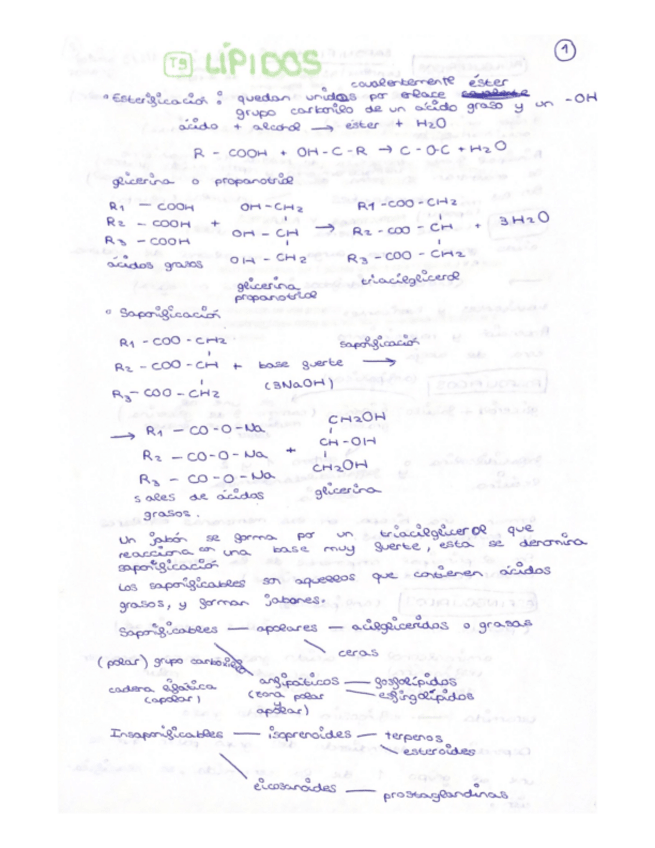 1
T9 LÍPIDOS
covalentemente éster
• Esterificación: quedan unidos por enlace covalente
grupo carbonilo de un ácido graso y un -OH
ácido + alcohol → éster + H2O
R - COOH + OH-C-R → C-O-C + H2O
glicerina o propanotriol
R1 - COOH OH-CH2 R1-COO-CH2
R2 - COOH + OH-CH → R2-COO-CH + 3H2O
R3 - COOH OH-CH2 R3-COO-CH2
ácidos grasos glicerina propanotriol triacilglicerol
• Saponificación
R1-COO-CH2 saponificación
R2-COO-CH + base fuerte →
R3-COO-CH2 (3NaOH)
→ R1-CO-O-Na CH2OH
R2-CO-O-Na + CH-OH
R3-CO-O-Na CH2OH
sales de ácidos glicerina
grasos.
Un jabón se forma por un triacilglicerol que
reacciona con una base muy fuerte, esta se denomina
saponificación
Los saponificables son aquellos que contienen ácidos
grasos, y forman jabones.
Saponificables — apolares — acilglicéridos o grasas
ceras
(polar) grupo carboxilo
cadena alifática anfipáticos — fosfolípidos
(apolar) (zona polar — esfingolípidos
y
apolar)
Insaponificables — isoprenoides — terpenos
esteroides
eicosanoides — prostaglandinas